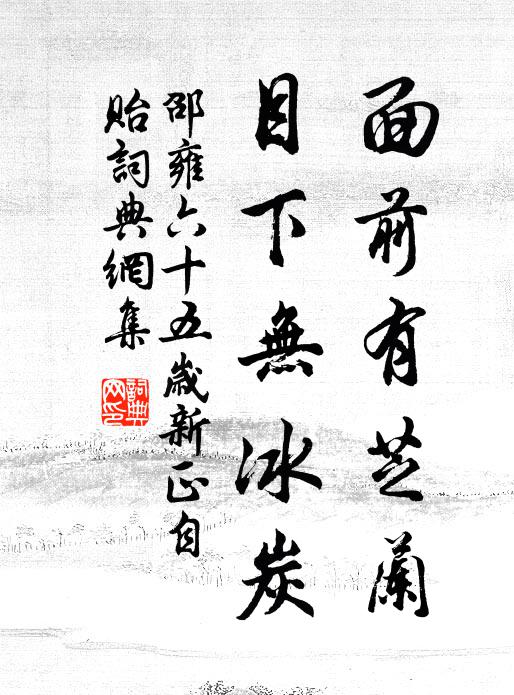 面前有芝蘭
目下無冰炭
邵雍六十五歲新正自
貽詞典網集
詞典网印